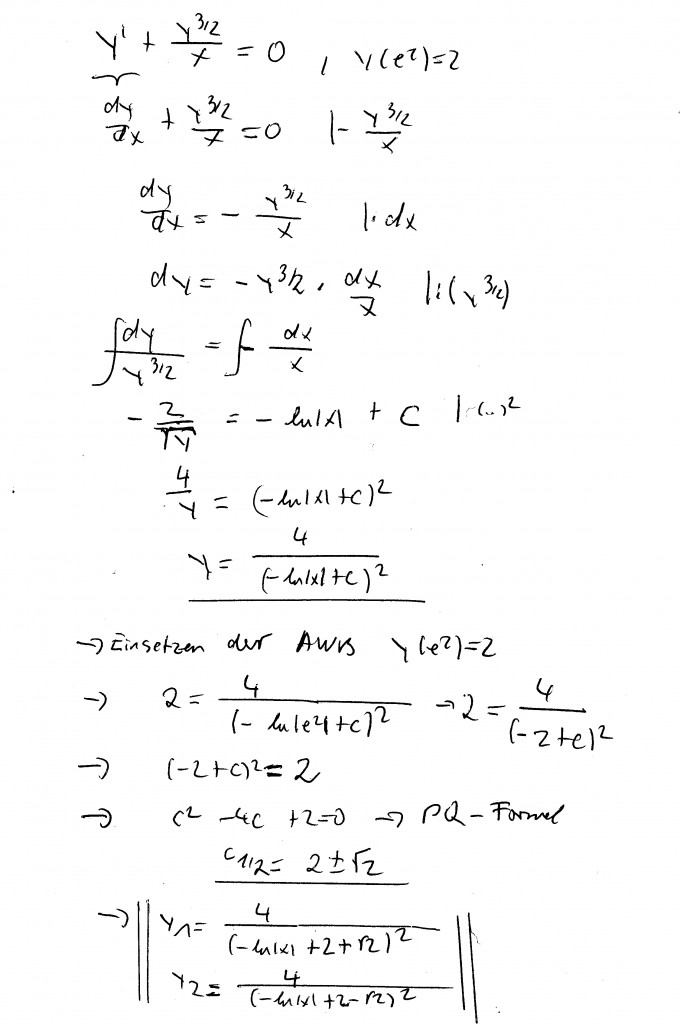 y' + y^3/2 / x = 0 , y(e²)=2
dy/dx + y^3/2 / x = 0 |- y^3/2 / x
dy/dx = - y^3/2 / x |· dx
dy = - y^3/2 · dx/x |:(y^3/2)
∫ dy / y^3/2 = ∫- dx/x
- 2/√y = - ln|x| + C |(..)²
4/y = (-ln|x|+C)²
y = 4/(-ln|x|+C)²
→ Einsetzen der AWB y(e²)=2
→ 2 = 4/(-ln|e²|+C)² → 2 = 4/(-2+C)²
→ (-2+C)² = 2
→ C² -4C +2=0 → PQ-Formel
C1/2 = 2±√2
→ || y1 = 4/(-ln|x| +2+√2)² ||
y2 = 4/(-ln|x| +2-√2)²